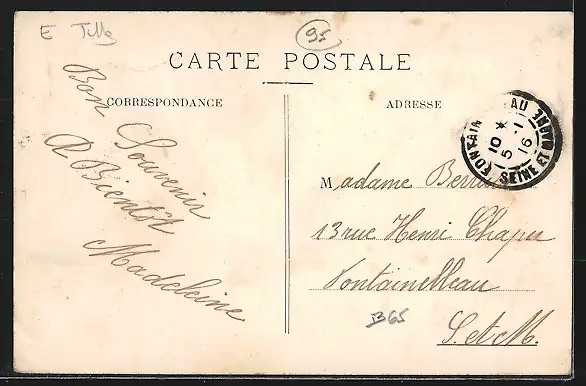 E Tilly
95
CARTE POSTALE
CORRESPONDANCE
ADRESSE
Bon Souvenir
A Bientôt
Madeleine
Madame
13 rue Henri Chapu
Fontainelleau
S. et M.
FONTAIN AU
10 * 
5 -1
16
SEINE ET MARNE
B65